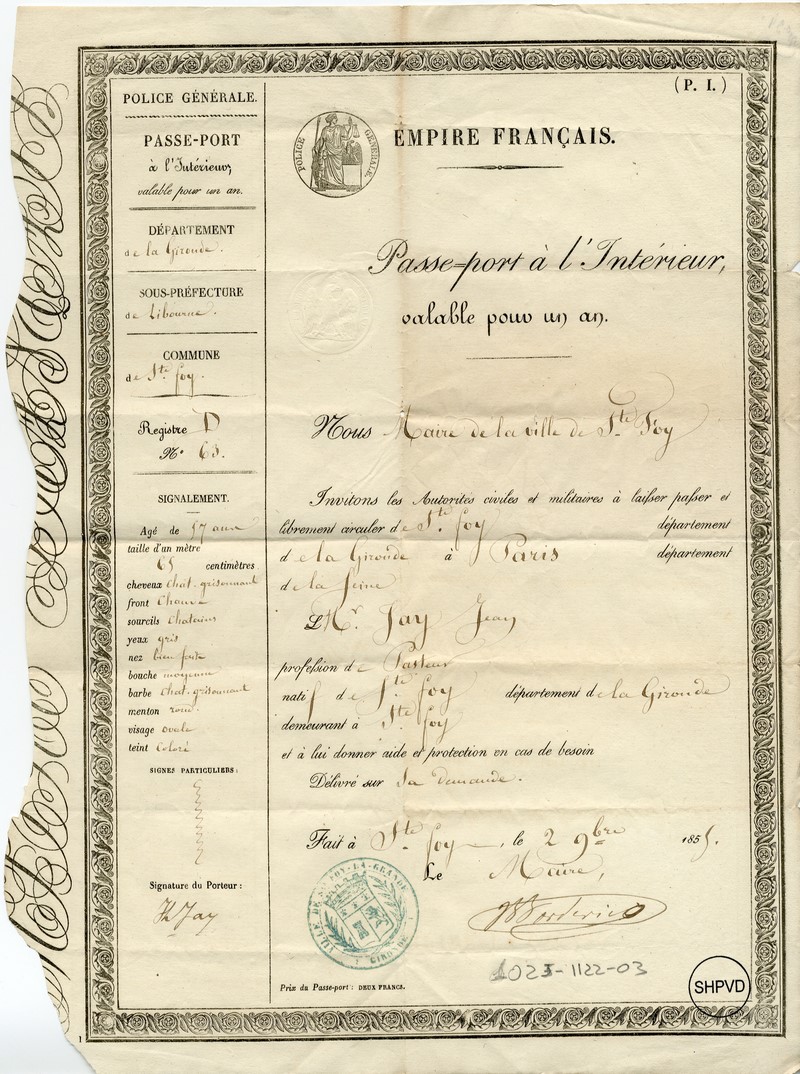 (P. I.)
POLICE GÉNÉRALE.
PASSE-PORT
à l'Intérieur,
valable pour un an.
DÉPARTEMENT
de la Gironde.
SOUS-PRÉFECTURE
de Libourne.
COMMUNE
de Ste foy.
Registre D
N° 63.
SIGNALEMENT.
Agé de 57 ans
taille d'un mètre
65 centimètres
cheveux chat. grisonnant
front Chauve
sourcils Chatains
yeux gris
nez bien fait
bouche moyenne
barbe Chat. grisonnant
menton rond.
visage ovale
teint Coloré
SIGNES PARTICULIERS :
Signature du Porteur :
Jay
POLICE GÉNÉRALE
EMPIRE FRANÇAIS.
Passe-port à l'Intérieur,
valable pour un an.
Nous Maire de la ville de Ste Foy
Invitons les Autorités civiles et militaires à laisser passer et
librement circuler de Ste foy département
de la Gironde à Paris département
de la Seine
L Mr. Jay Jean
profession de Pasteur
natif de Ste foy département de la Gironde
demeurant à Ste foy
et à lui donner aide et protection en cas de besoin
Délivré sur Sa demande.
Fait à Ste foy, le 2 9bre 1855.
Le Maire,
VILLE DE Ste FOY-LA-GRANDE
GIRONDE
2025-1122-03
SHPVD
Prix du Passe-port : DEUX FRANCS.
1